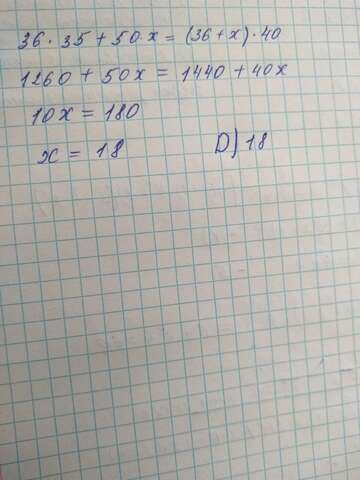 36 · 35 + 50 · x = (36 + x) · 40
1260 + 50x = 1440 + 40x
10x = 180
x = 18 D) 18